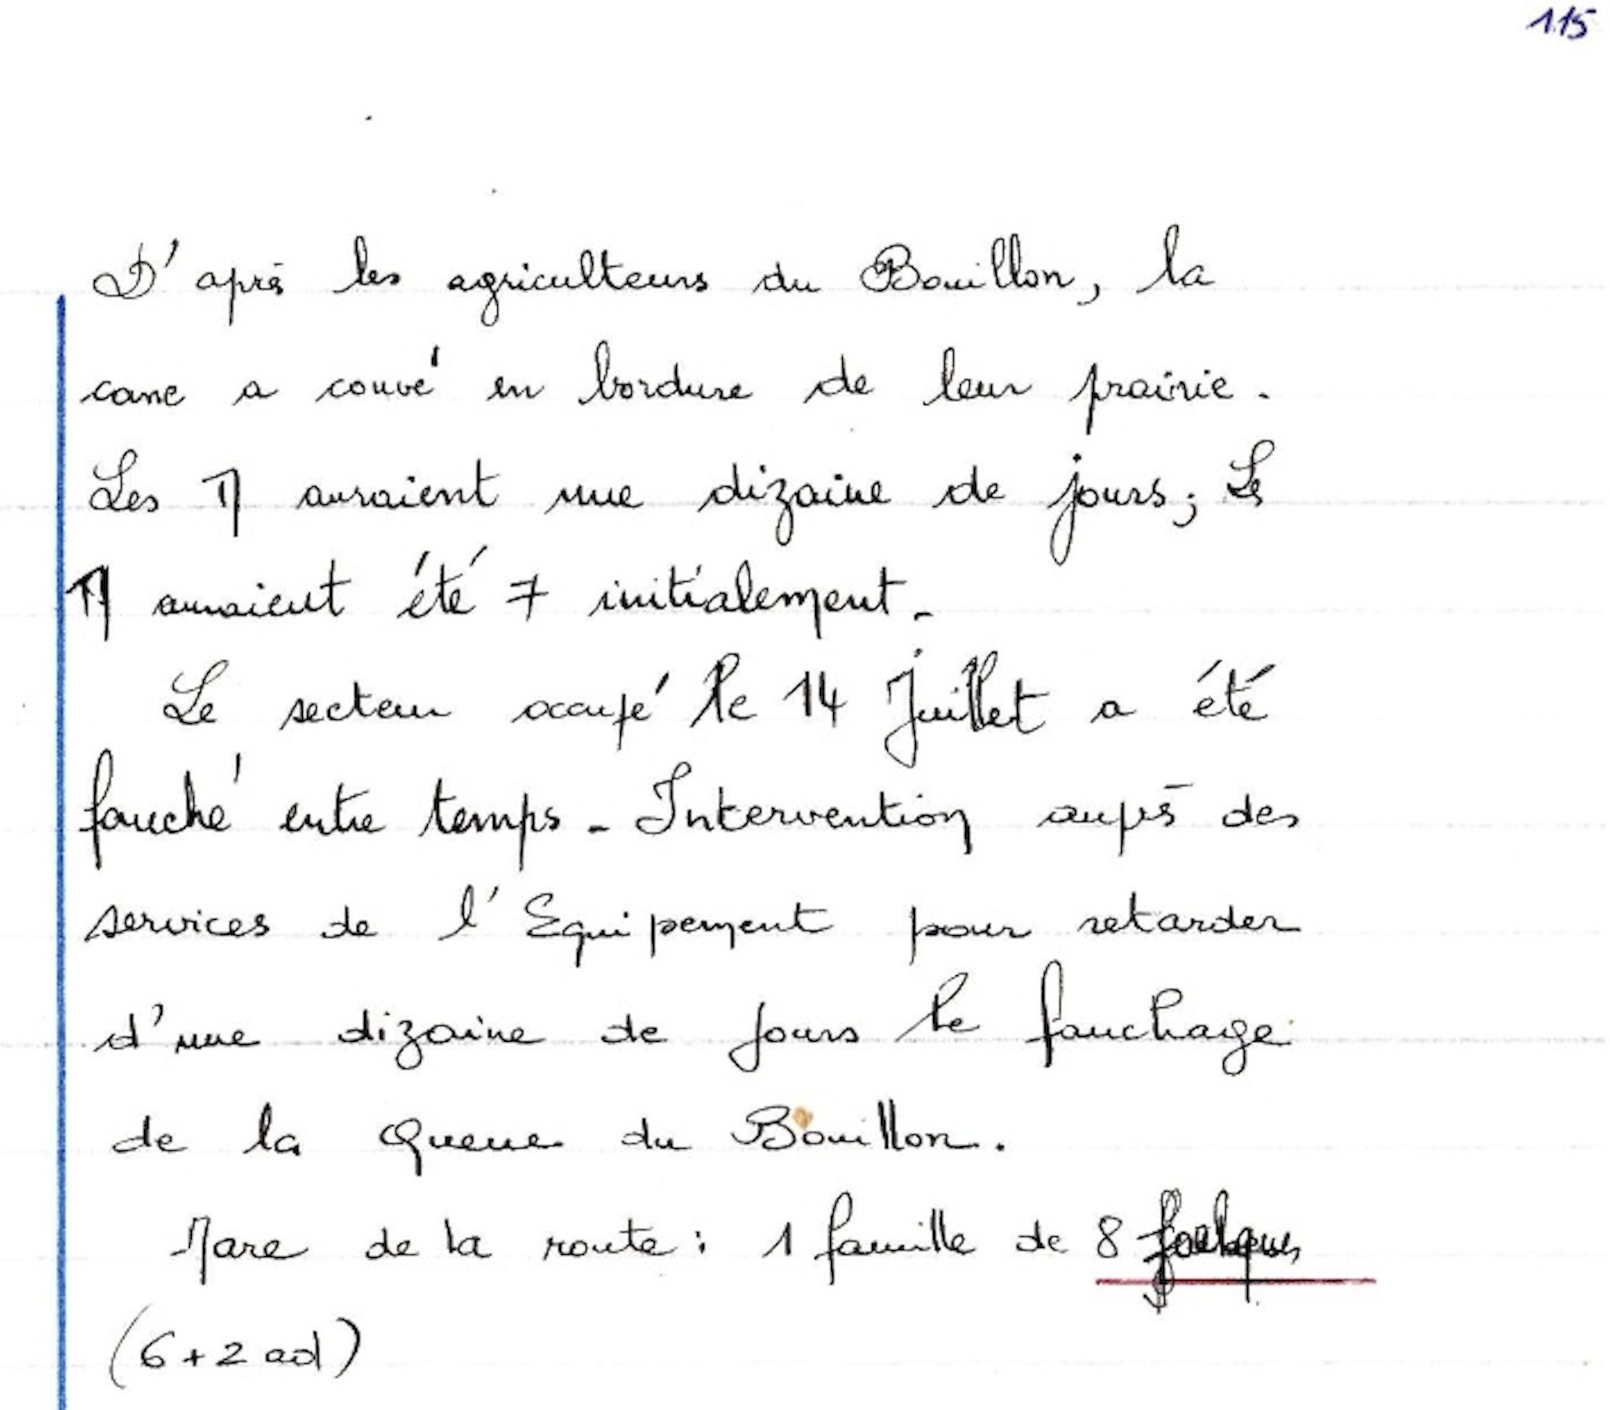 115
D'après les agriculteurs du Bouillon, la
cane a couvé en bordure de leur prairie.
Les auraient une dizaine de jours; Les
auraient été 7 initialement.
Le secteur occupé le 14 Juillet a été
fauché entre temps. Intervention auprès des
services de l'Equipement pour retarder
d'une dizaine de jours le fauchage
de la Queue du Bouillon.
Mare de la route : 1 famille de 8 foulques
(6 + 2 ad)